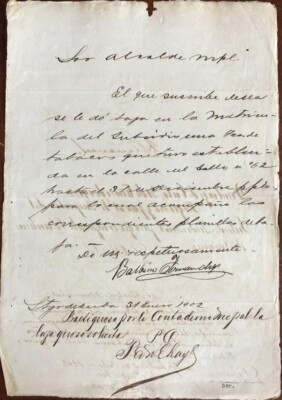 Sor Alcalde Mpl
El que suscribe desea
se le dé baja en la Matricu-
la del Subsidio una venta de
tabacos que tuvo estableci-
da en la calle del Gallo nº 62
hasta el 31 de Diciembre p/p/o
para lo cual acompaña las
correspondientes planillas de ba-
ja.
De V.S. respetuosamente
Balbino Fernandez
Stgo de Cuba 31 Enero 1902
Practiquese por la Contaduria Mpal la
baja que se solicita